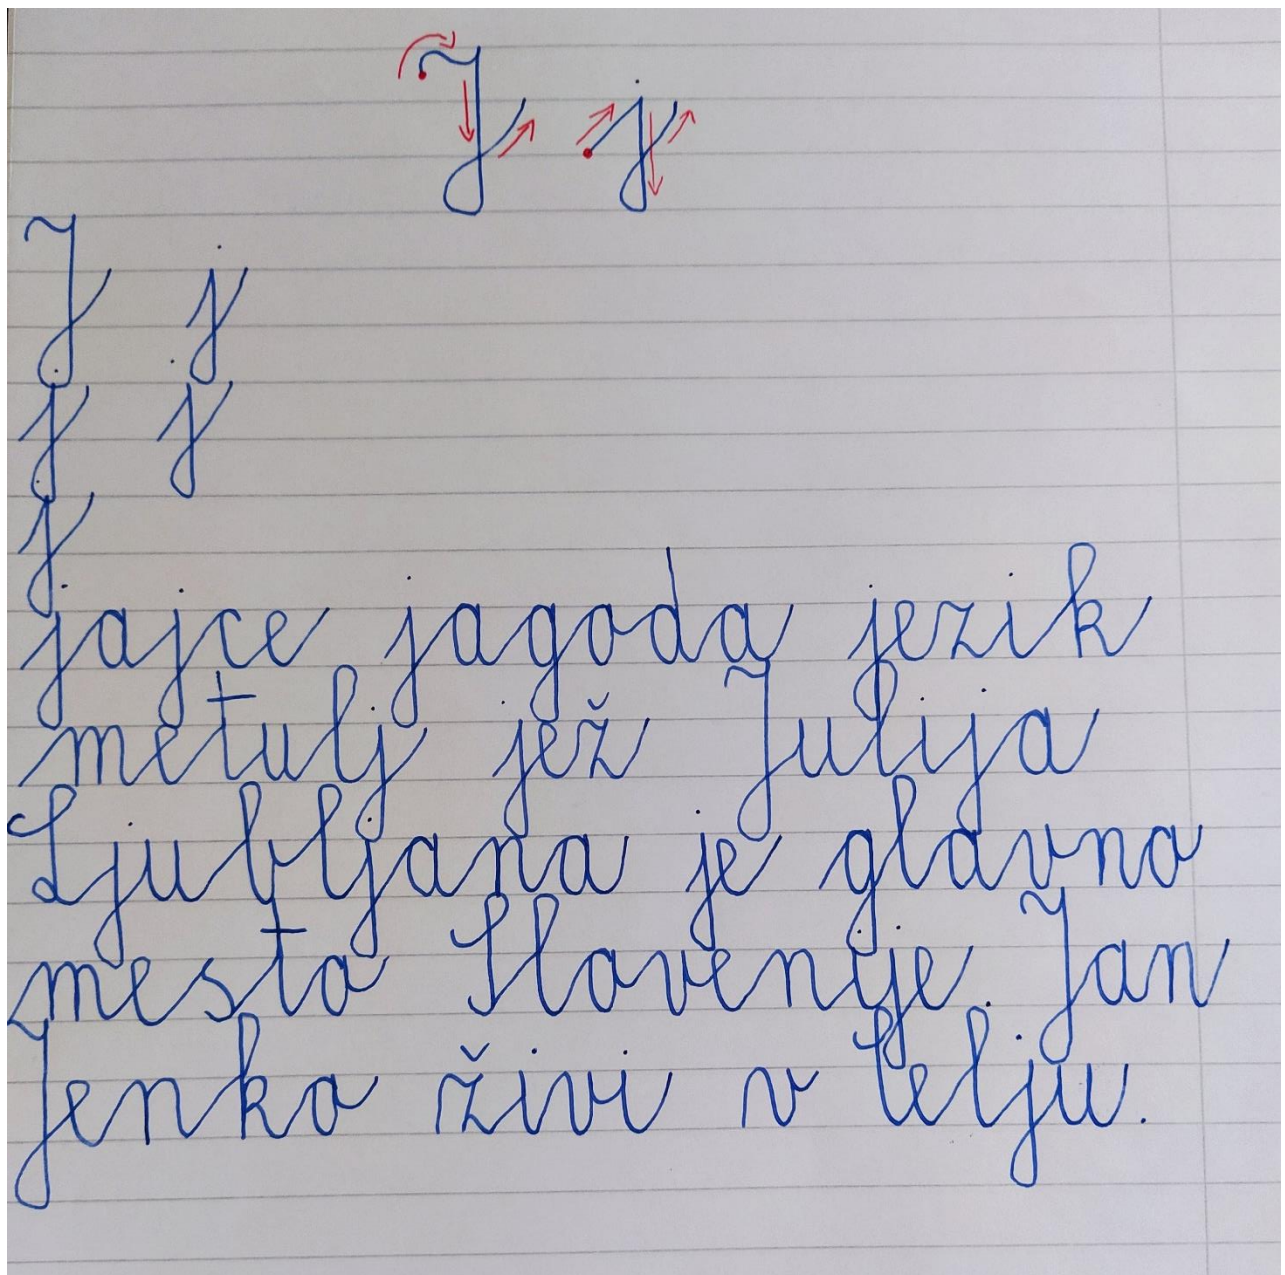 J j
J j
j j
j
jajce jagoda jezik
metulj jež Julija
Ljubljana je glavno
mesto Slovenije. Jan
Jenko živi v Celju.